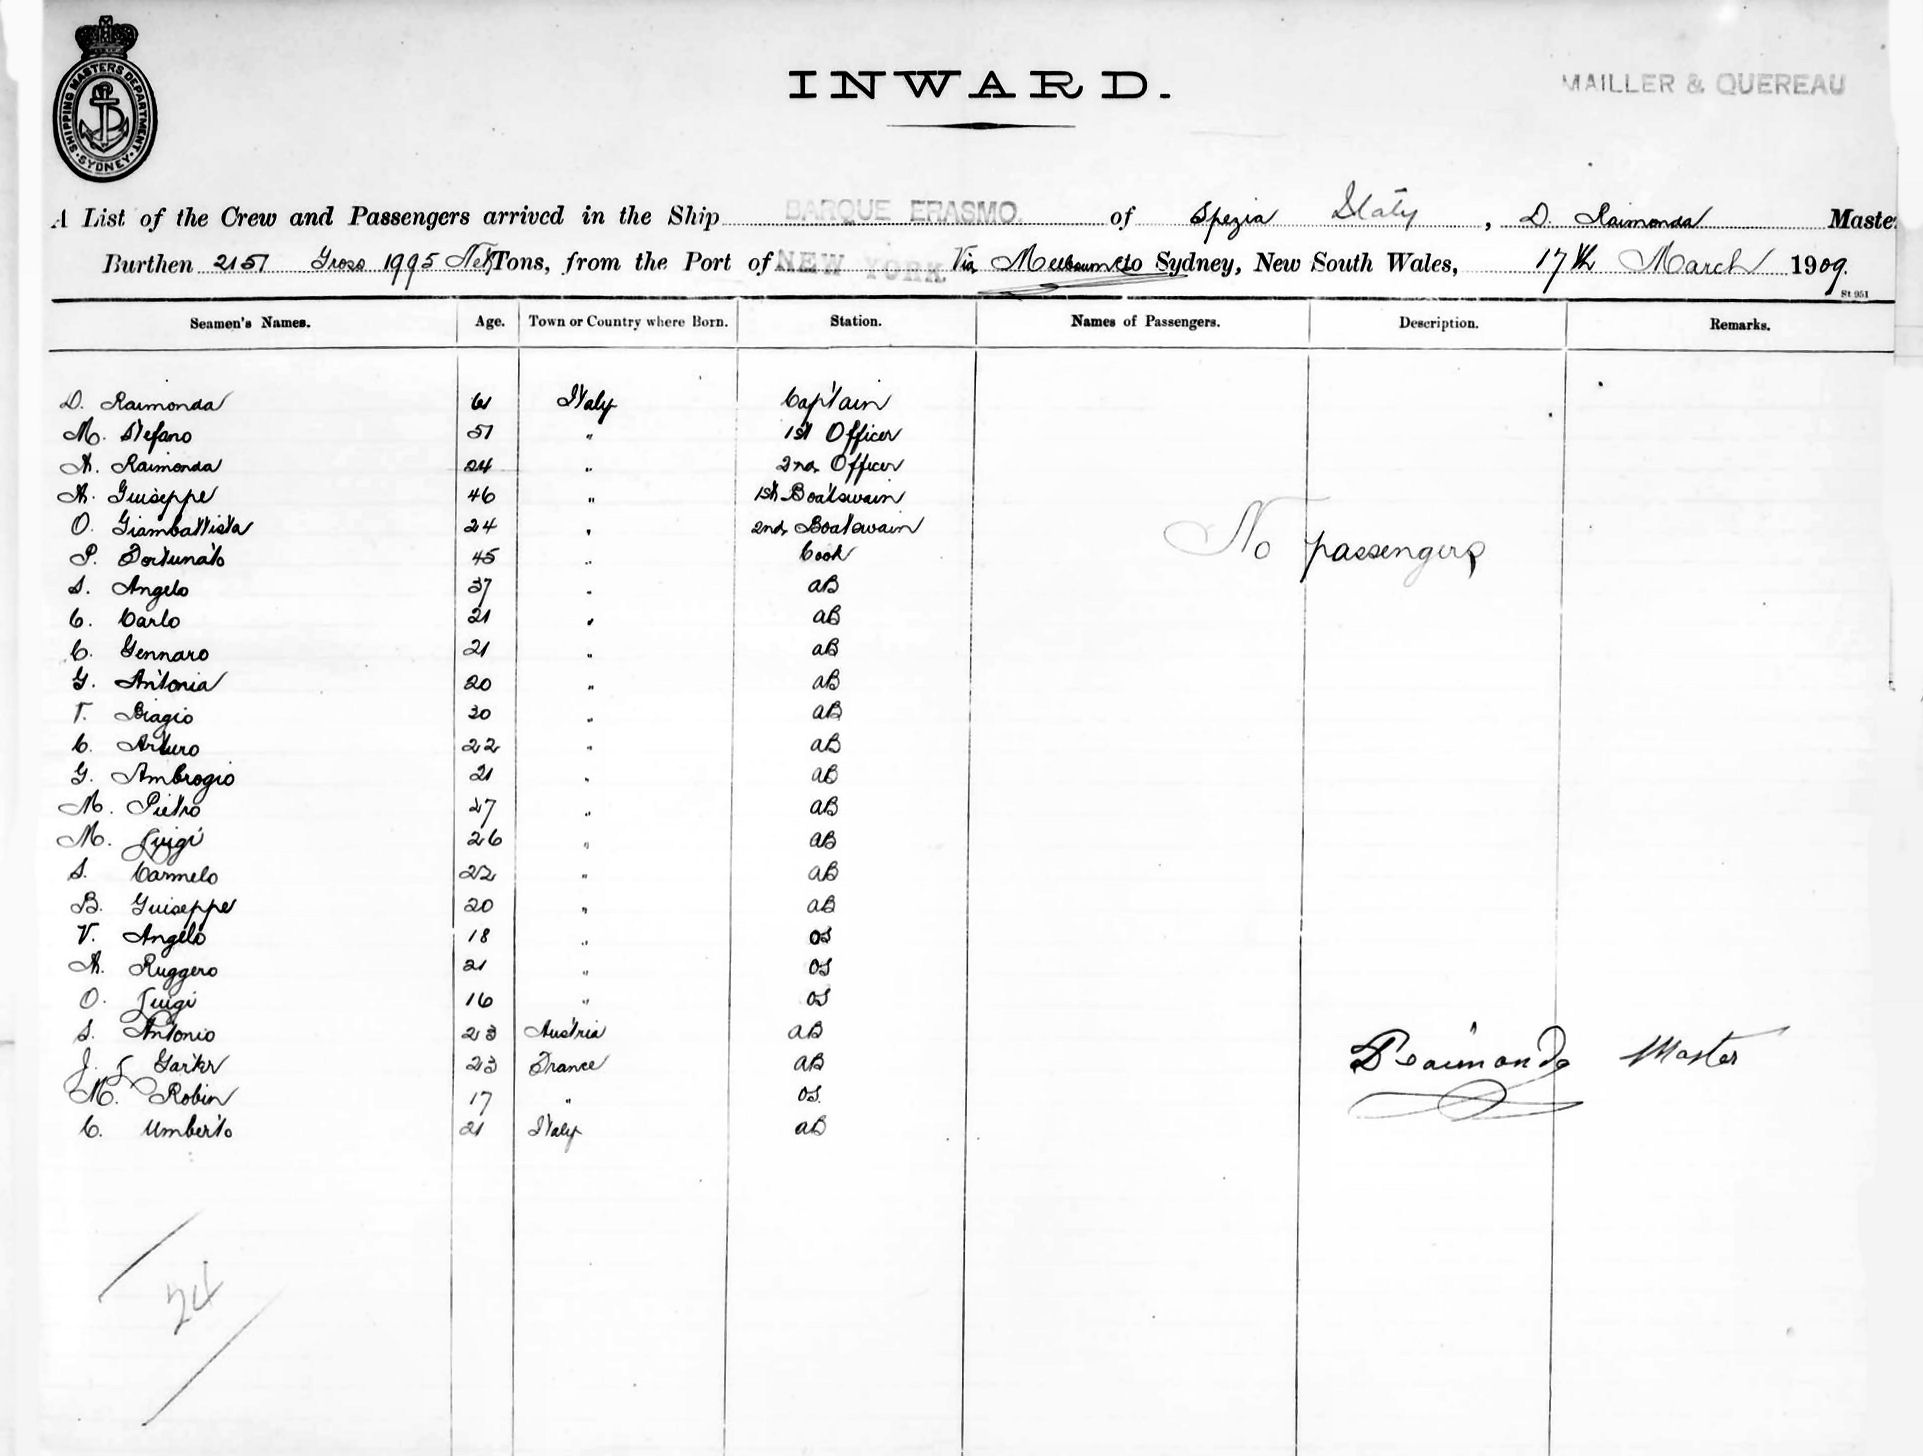 SHIPPING MASTERS DEPARTMENT · SYDNEY ·
INWARD.
MAILLER & QUEREAU
A List of the Crew and Passengers arrived in the Ship BARQUE ERASMO. of Spezia Italy, D. Raimonda Maste
Burthen 2157 Gross 1995 Nett Tons, from the Port of NEW YORK Via Melbourne to Sydney, New South Wales, 17th March 1909.
St 951
Seamen's Names. Age. Town or Country where Born. Station. Names of Passengers. Description. Remarks.
D. Raimonda 61 Italy Captain
M. Stefano 51 " 1st Officer
A. Raimonda 24 " 2nd Officer
A. Guiseppe 46 " 1st Boatswain
O. Giambattista 24 " 2nd Boatswain
No passengers
P. Fortunato 45 " Cook
S. Angelo 37 " AB
C. Carlo 21 " AB
C. Gennaro 21 " AB
G. Antonia 20 " AB
T. Biagio 30 " AB
C. Arturo 22 " AB
G. Ambrogio 21 " AB
M. Pietro 27 " AB
M. Luigi 26 " AB
S. Carmelo 22 " AB
B. Guiseppe 20 " AB
V. Angelo 18 " OS
A. Ruggero 21 " OS
O. Luigi 16 " OS
S. Antonio 23 Austria AB
J. L 23 France AB
D Raimondo Master
M. Robin 17 " OS
C. Umberto 21 Italy AB
24